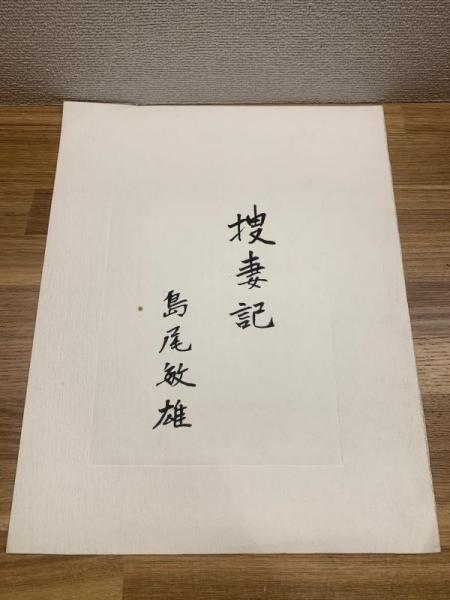 搜妻記
島尾敏雄